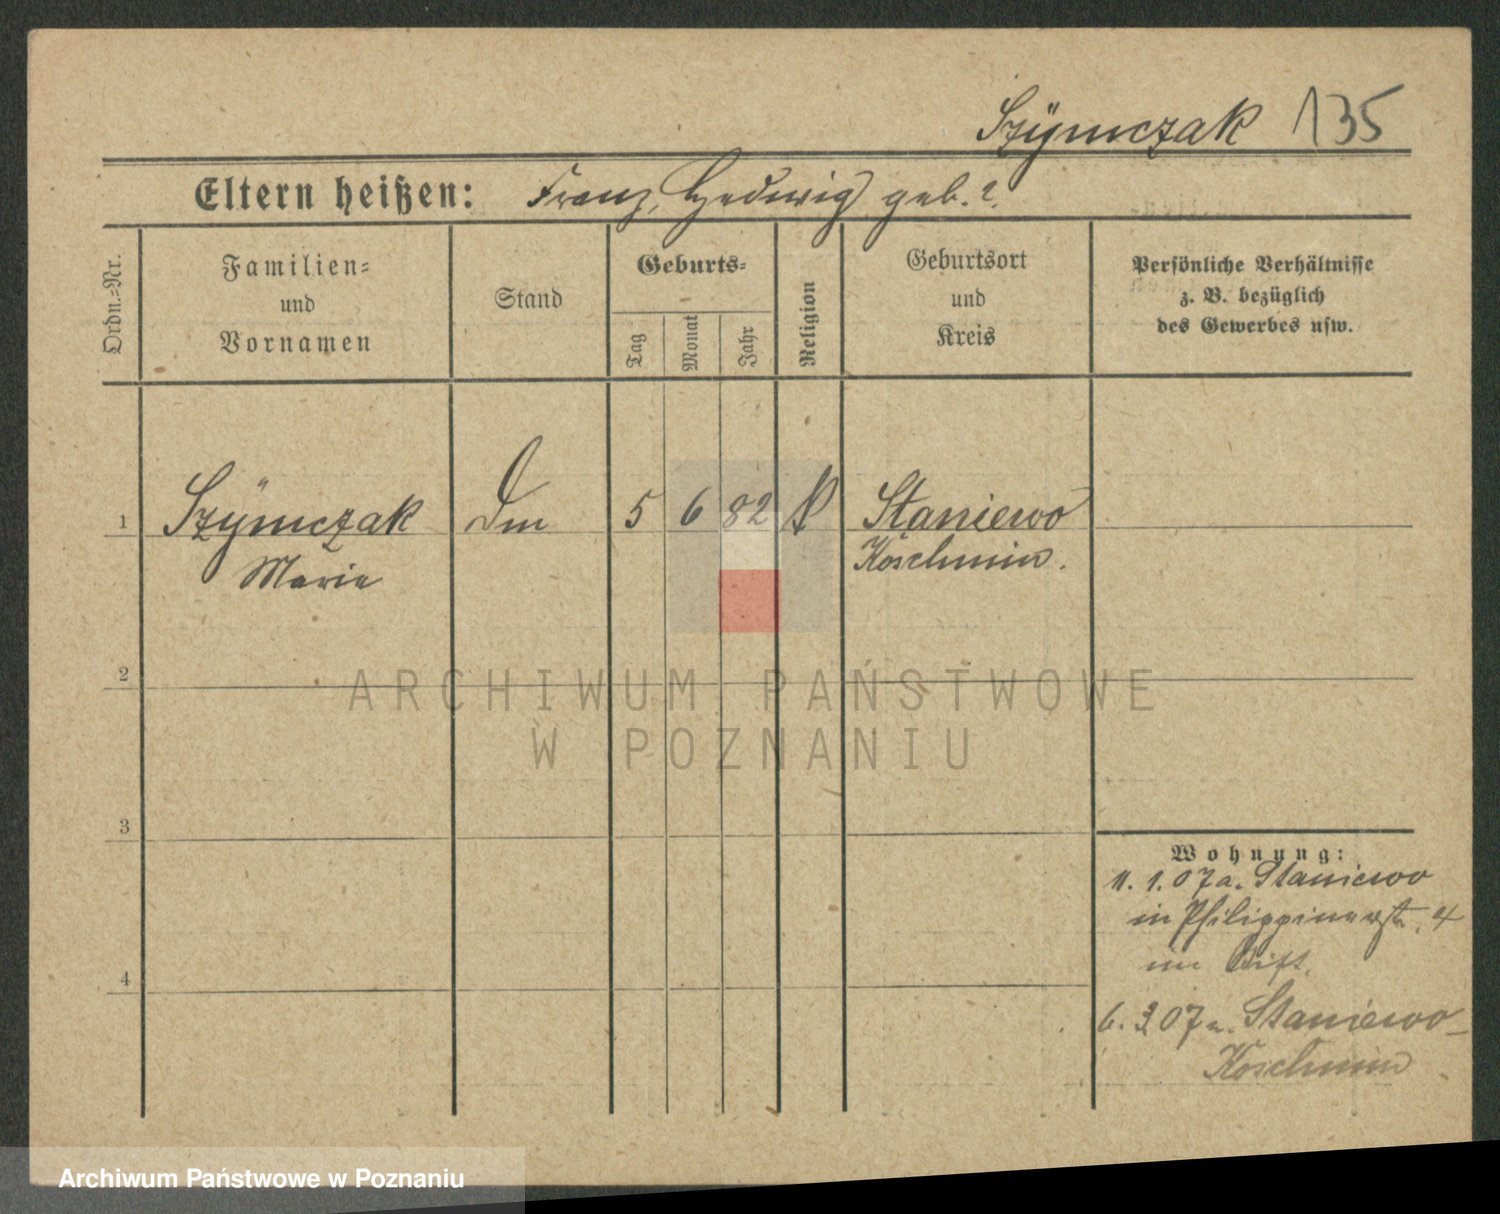 Szÿmczak 135
Eltern heißen: Franz, Hedwig geb. ?
Ordn.=Nr.
Familien=
und
Vornamen
Stand
Geburts=
Tag
Monat
Jahr
Religion
Geburtsort
und
Kreis
Persönliche Verhältnisse
z. B. bezüglich
des Gewerbes usw.
1 Szÿmczak 5 6 82 Staniewo
Marie Koschmin.
2
3
4
Wohnung:
11. 1. 07 a. Staniewo
in Philippinerstr. 4
im Stift.
6. 3. 07 n. Staniewo
Koschmin
ARCHIWUM PAŃSTWOWE
W POZNANIU
Archiwum Państwowe w Poznaniu